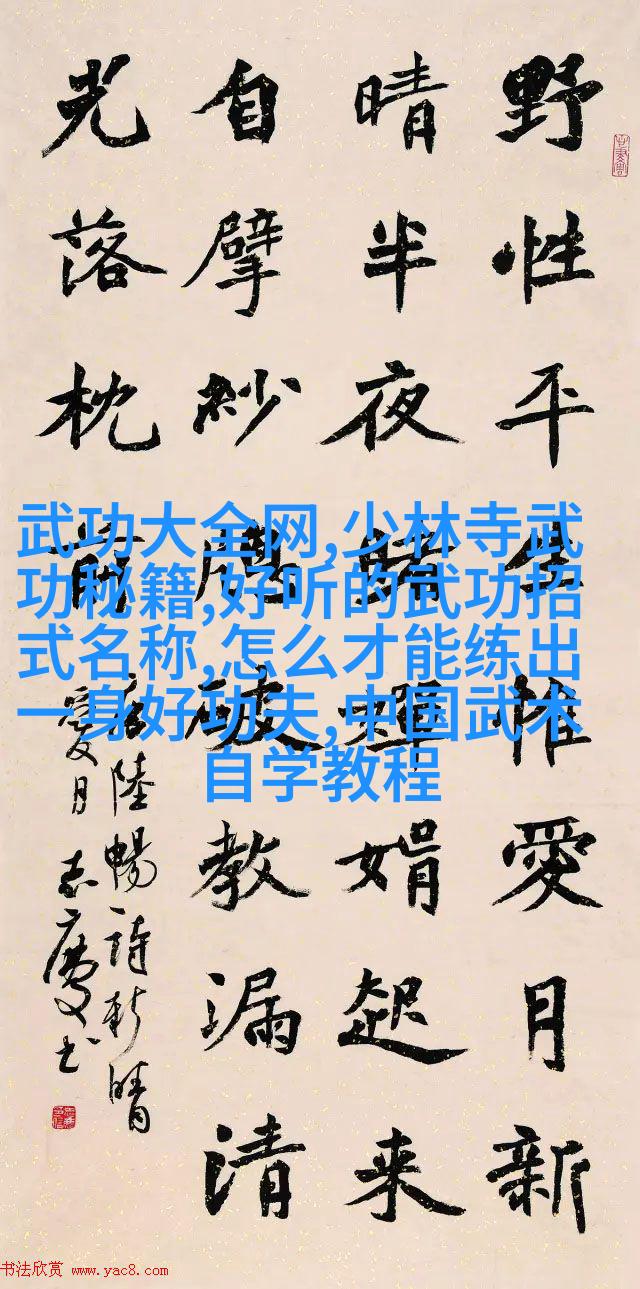 野性平生惟愛月新
晴半夜睹嬋娟起來
自擘紗窓破教漏清
光落枕前
陸暢詩新晴
愛月 志慶书
武功大全网,少林寺武
功秘籍,好听的武功招
式名称,怎么才能练出
一身好功夫,中国武术
自学教程
书法欣赏 www.yac8.com